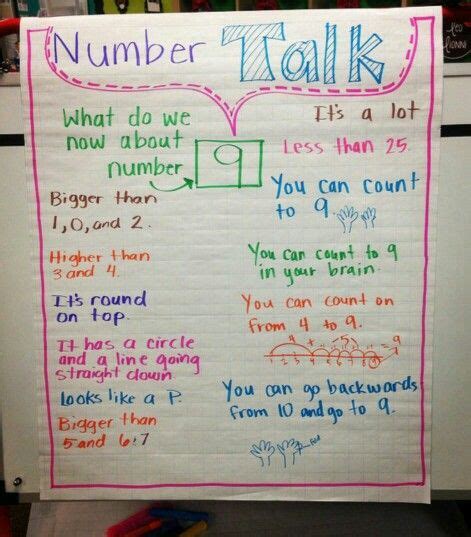 Number Talk
What do we
now about
number
9
Bigger than
1, 0, and 2.
Higher than
3 and 4.
It's round
on top.
It has a circle
and a line going
straight down.
Looks like a P.
Bigger than
5 and 6, 7
It's a lot
Less than 25.
You can count
to 9.
You can count to 9
in your brain.
You can count on
from 4 to 9.
4 + 5 = 9
1 2 3 4 5 6 7 8 9
You can go backwards
from 10 and go to 9.